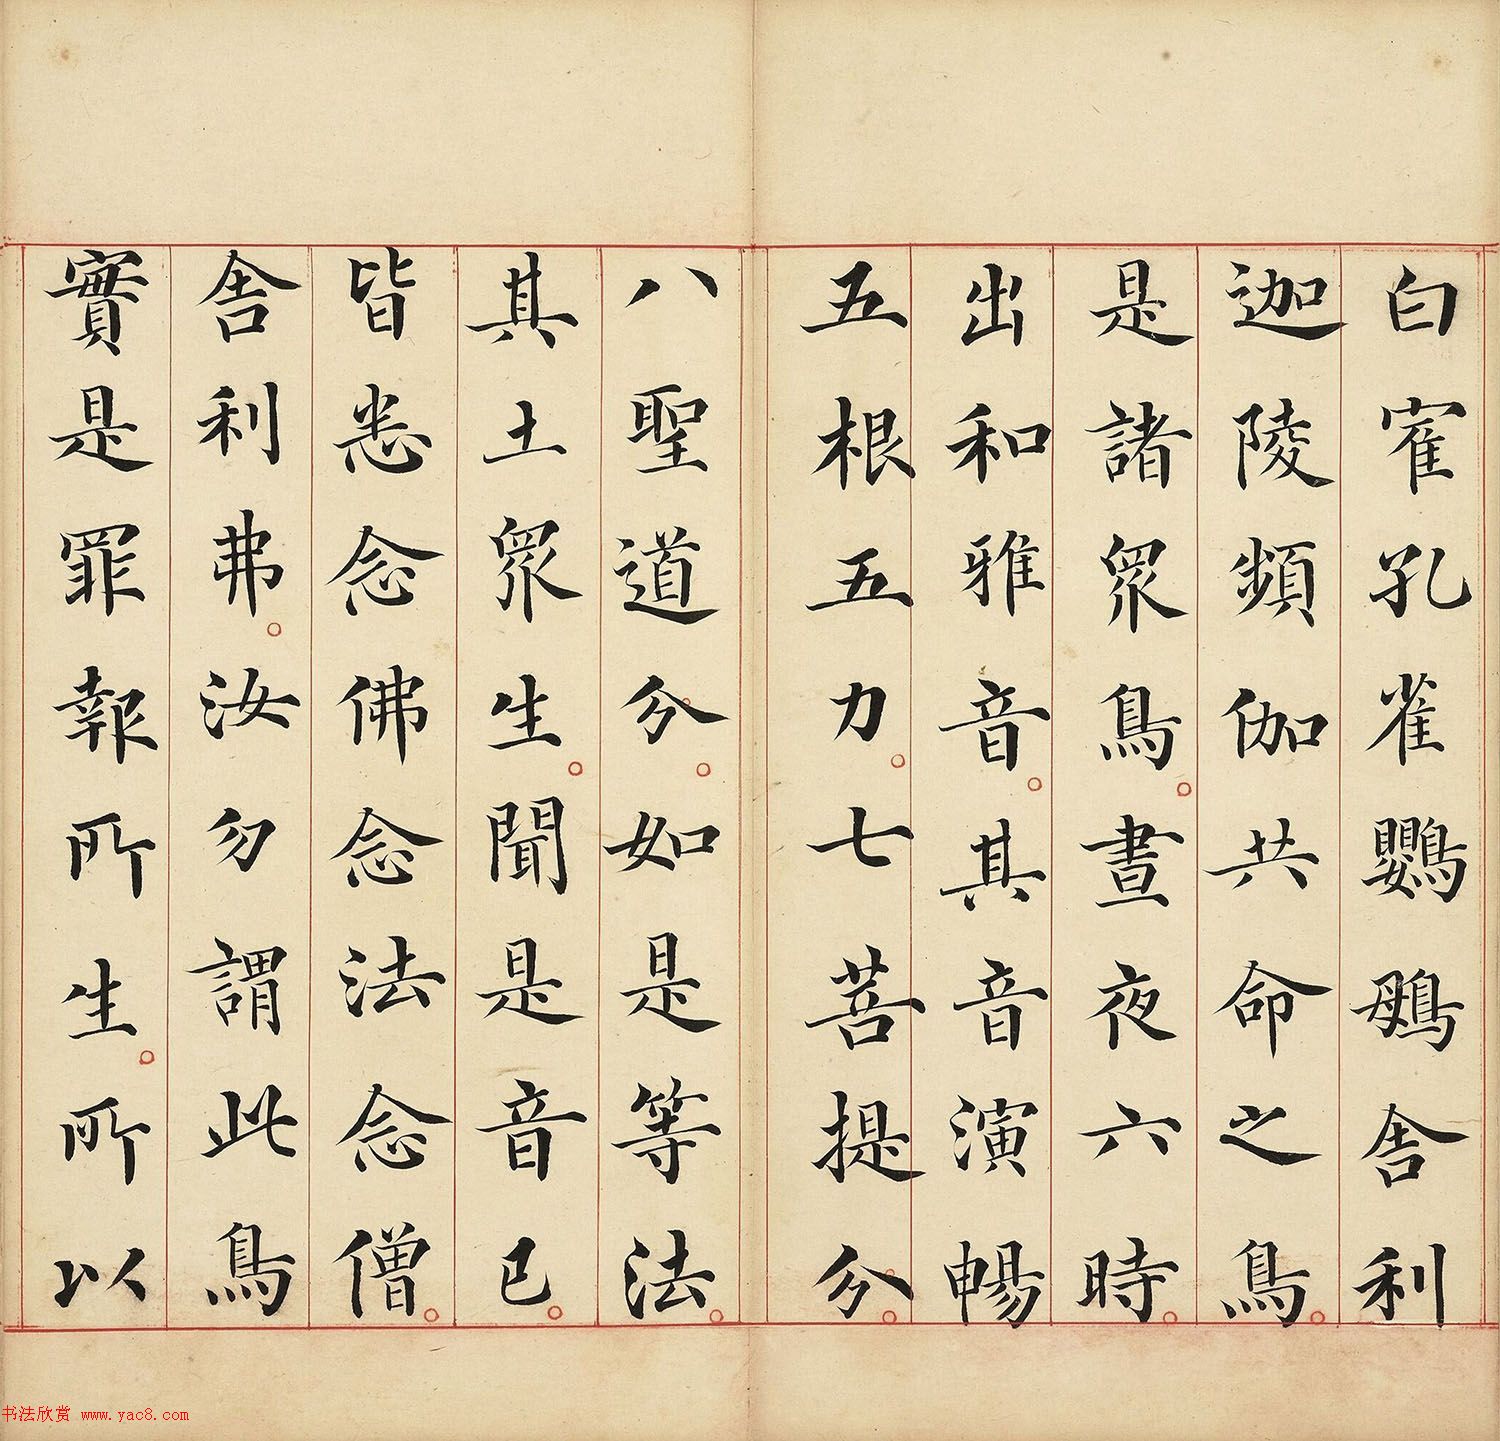 白寉孔雀鸚鵡舍利
迦陵頻伽共命之鳥。
是諸眾鳥。晝夜六時。
出和雅音。其音演暢
五根五力。七菩提分。
八聖道分。如是等法。
其土眾生。聞是音已。
皆悉念佛念法念僧。
舍利弗。汝勿謂此鳥
實是罪報所生。所以
书法欣赏 www.yac8.com